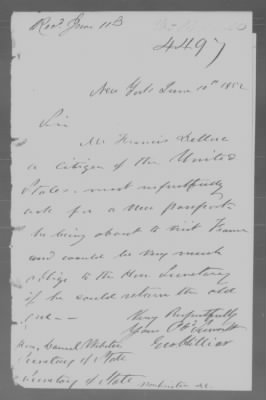 Recd June 11
4497
New York June 10th 1852
Sir
Mr Francis
a citizen of the United
States, most respectfully
ask for a new passport
he being about to visit France
and would be very much
oblige to the Hon Secretary
if he could return the old
one —
Very Respectfully
Your Obt Servant
Hon. Daniel Webster
Secretary of State
Secretary of State Washington DC.